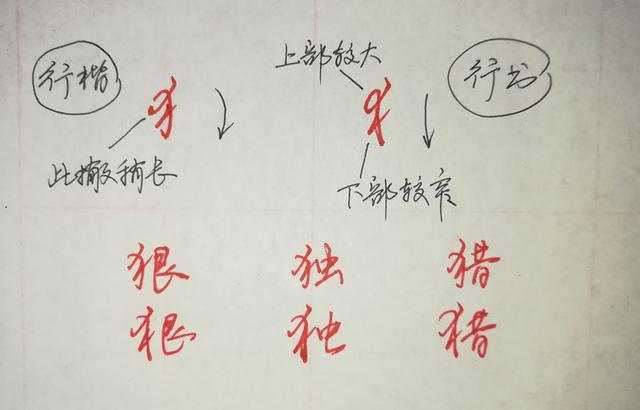 行楷 上部较大 行书
犭 犭
此撇稍长 下部较窄
狠 独 猎
狠 独 猎